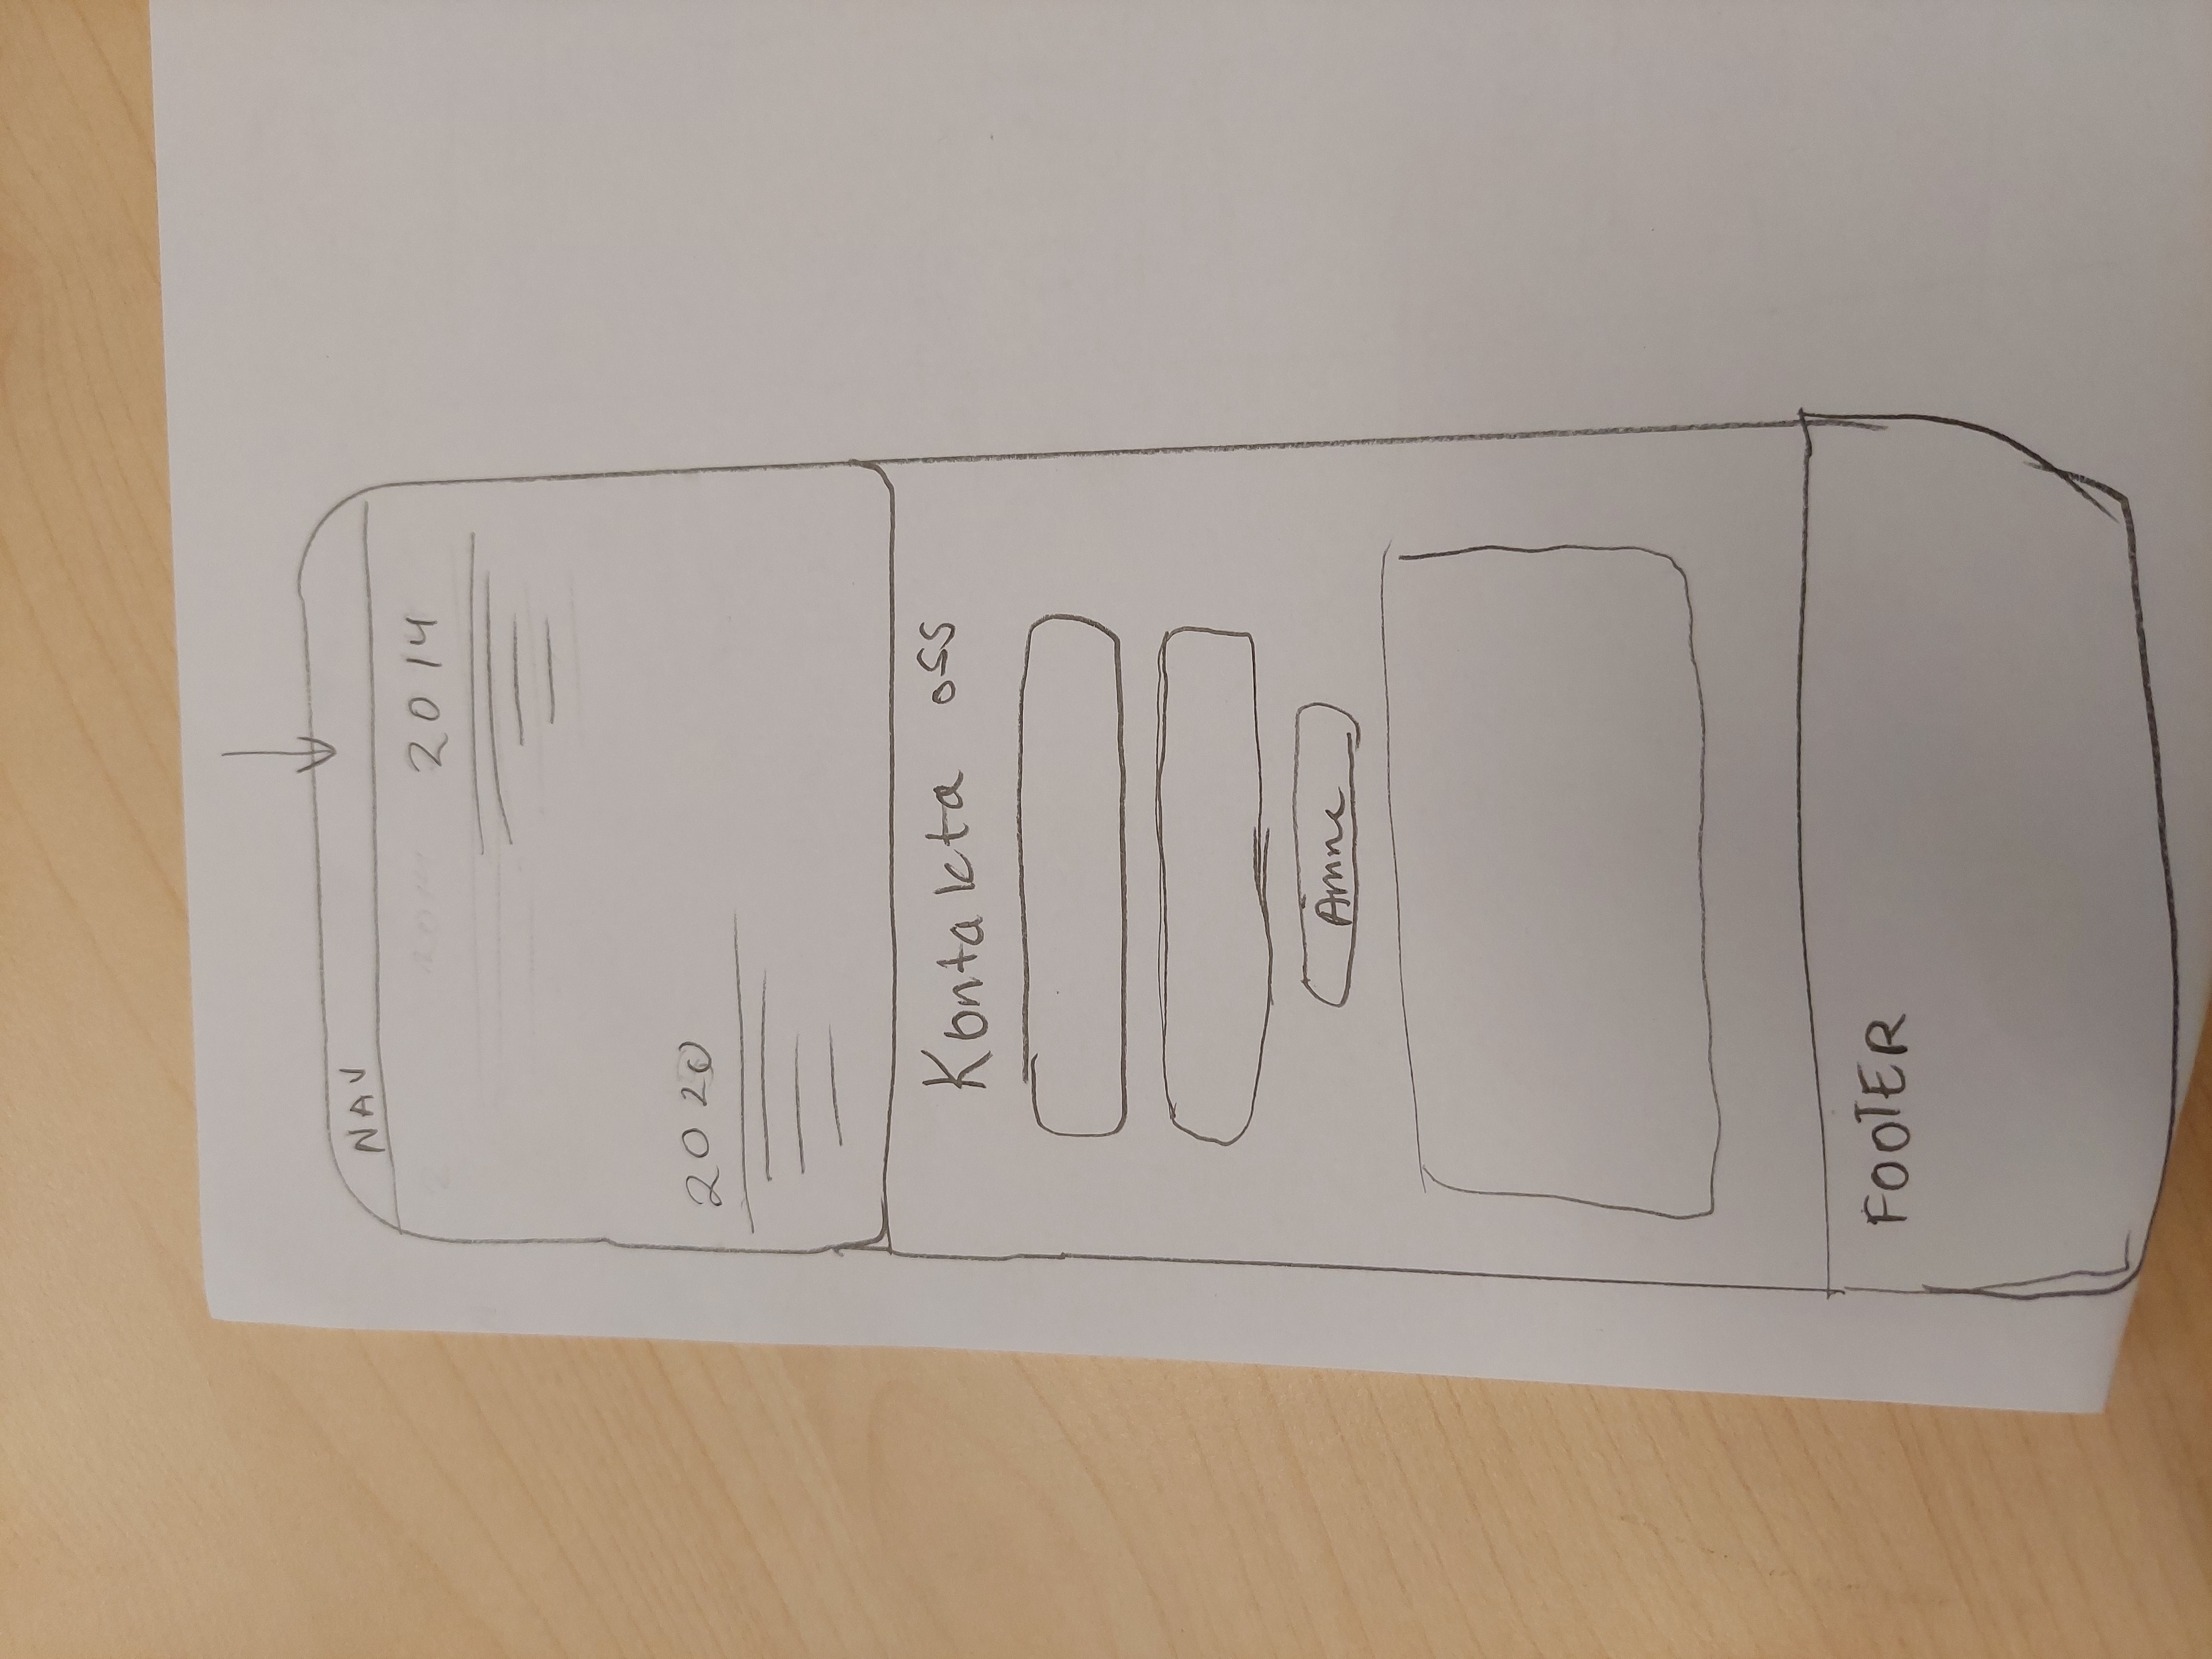 NAV
2014
2020
Kontakta oss
Ämne
FOOTER